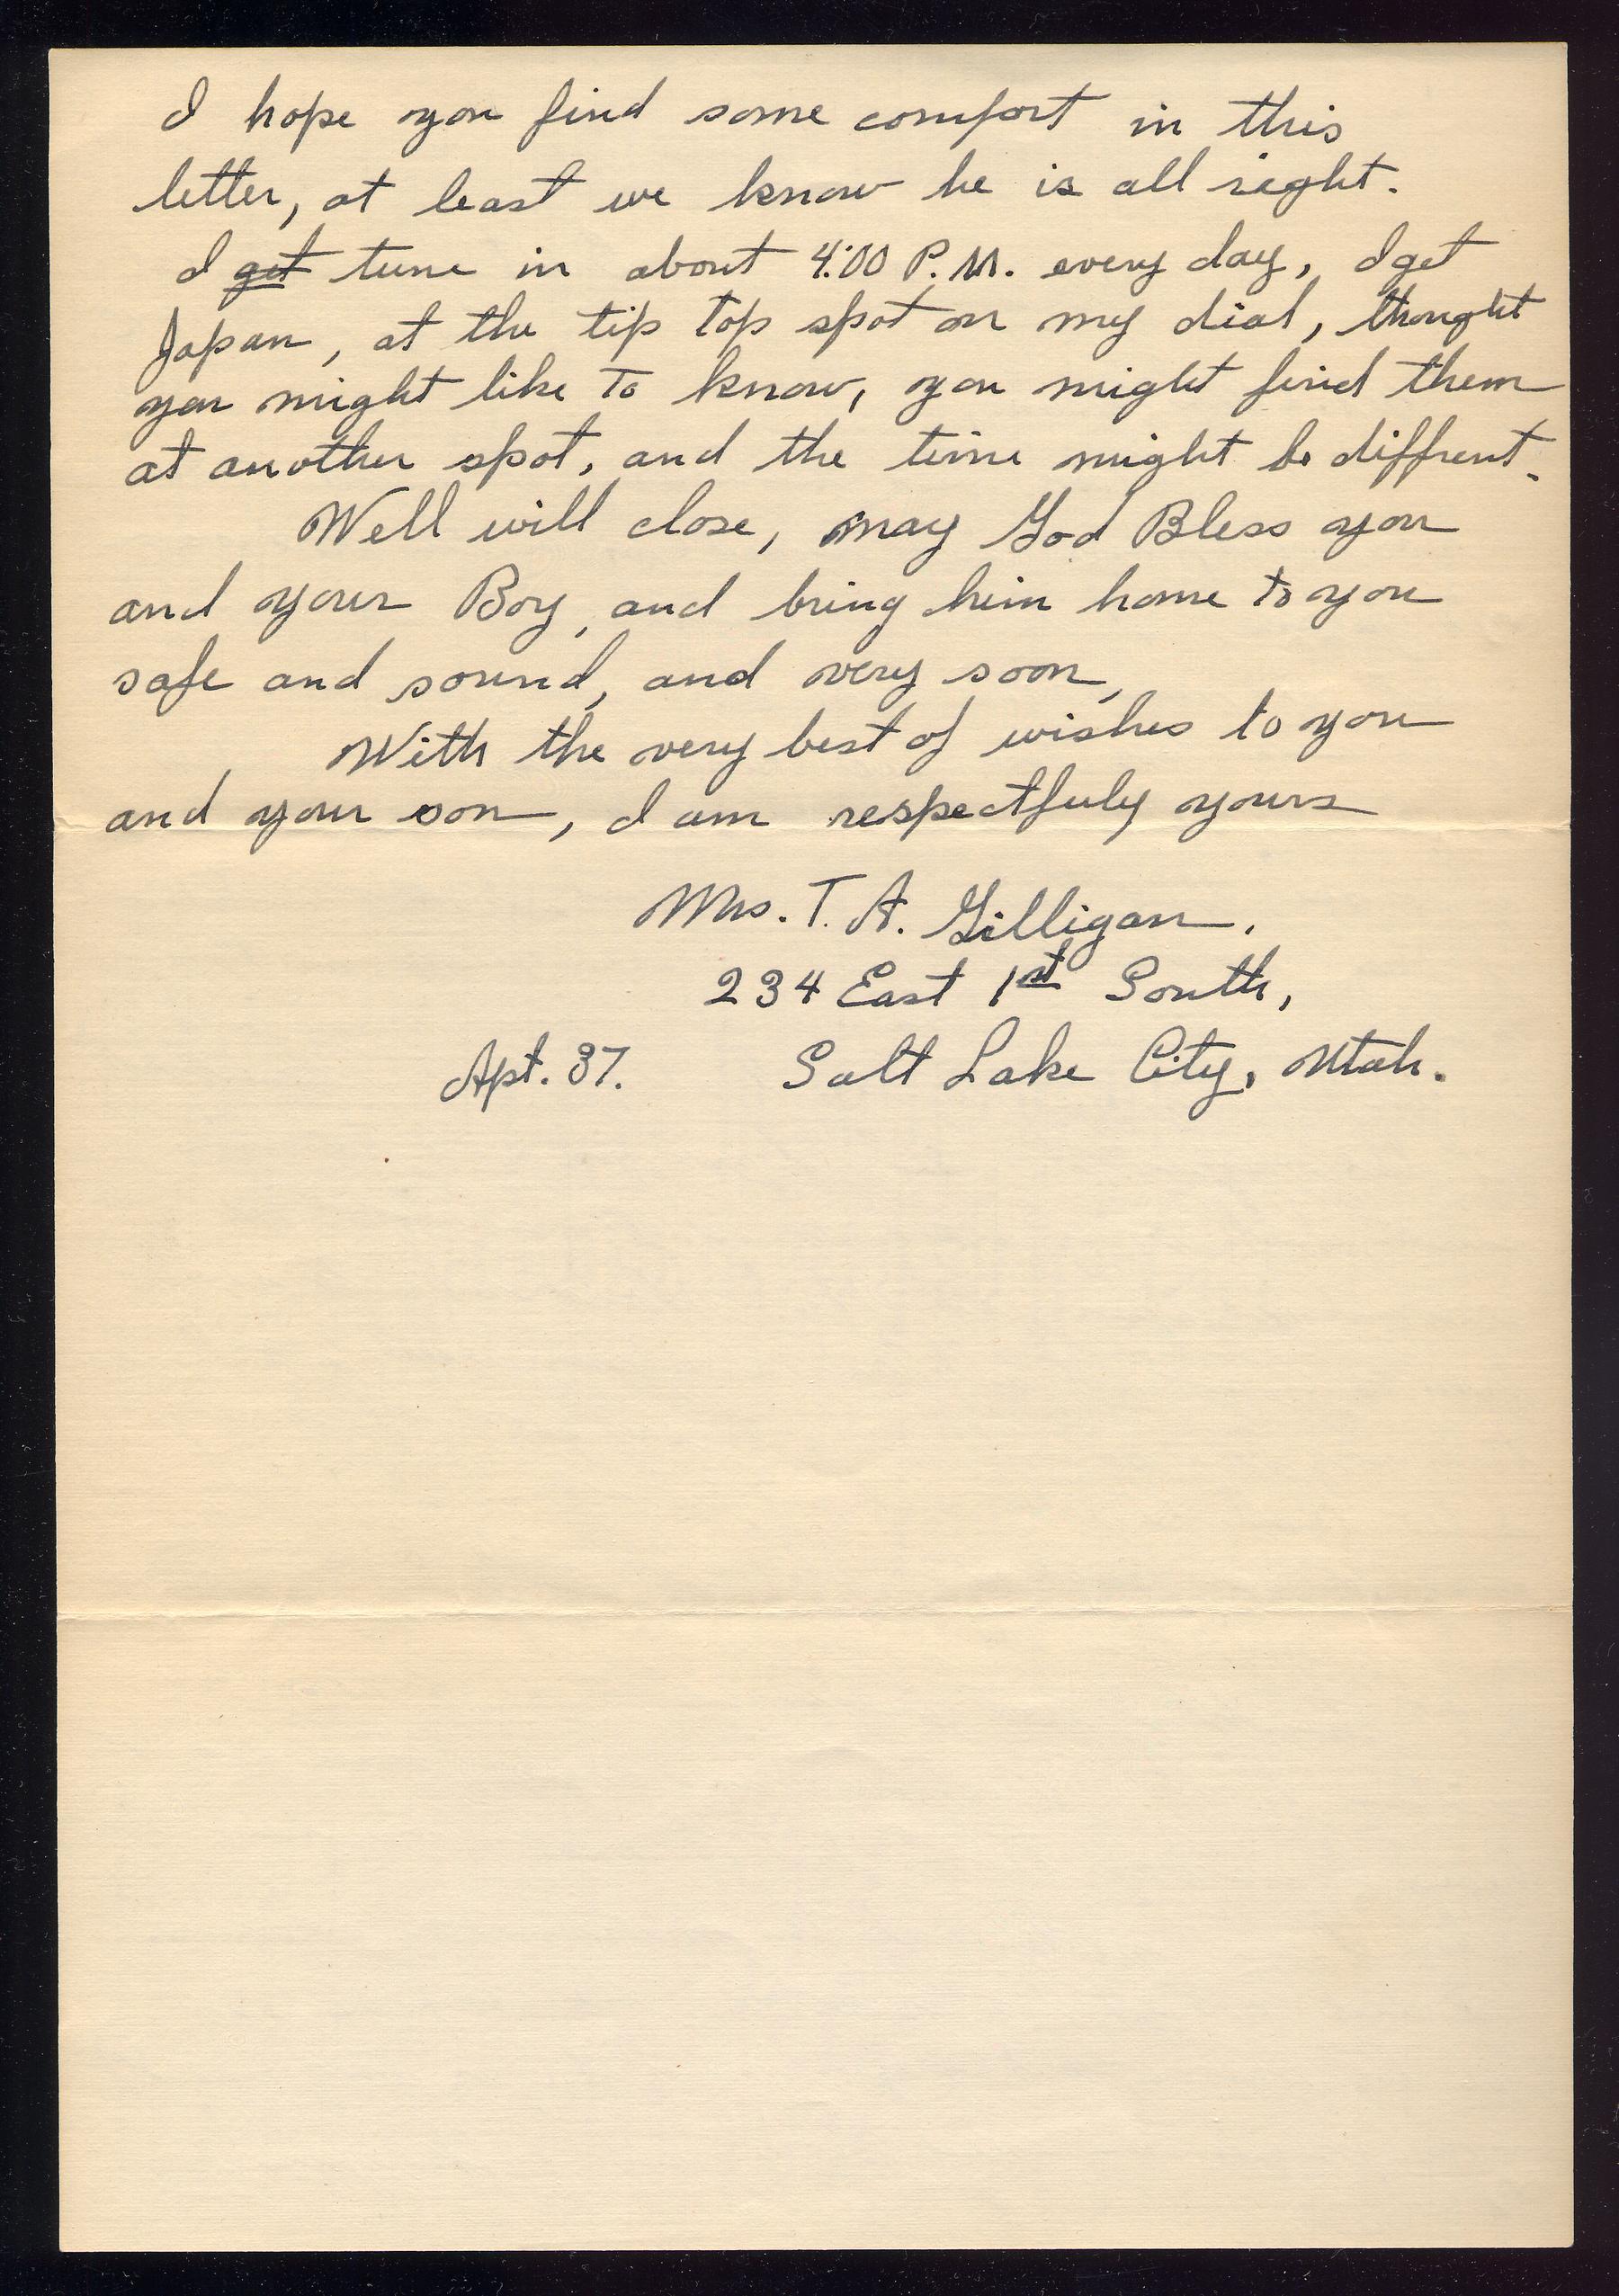 I hope you find some comfort in this
letter, at least we know he is all right.
I get tune in about 4:00 P.M. every day, I get
Japan, at the tip top spot on my dial, thought
you might like to know, you might find them
at another spot, and the time might be diffrent.
Well will close, may God Bless you
and your Boy, and bring him home to you
safe and sound, and very soon,
With the very best of wishes to you
and your son, I am respectfuly yours
Mrs. T. A. Gilligan.
234 East 1st South,
Apt. 37. Salt Lake City, Utah.